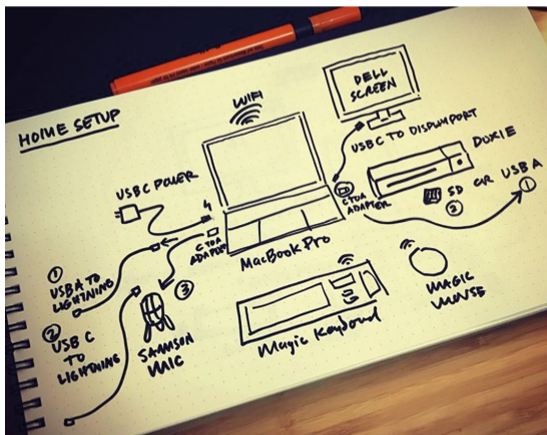 HOME SETUP
WIFI
DELL
SCREEN
USB C TO DISPLAYPORT
DOXIE
USB C POWER
C TO A
ADAPTER
C TO A
ADAPTER
SD OR USB A
①
②
MacBook Pro
①
USB A TO
LIGHTNING
②
USB C
TO
LIGHTNING
③
SAMSON
MIC
Magic Keyboard
MAGIC
MOUSE